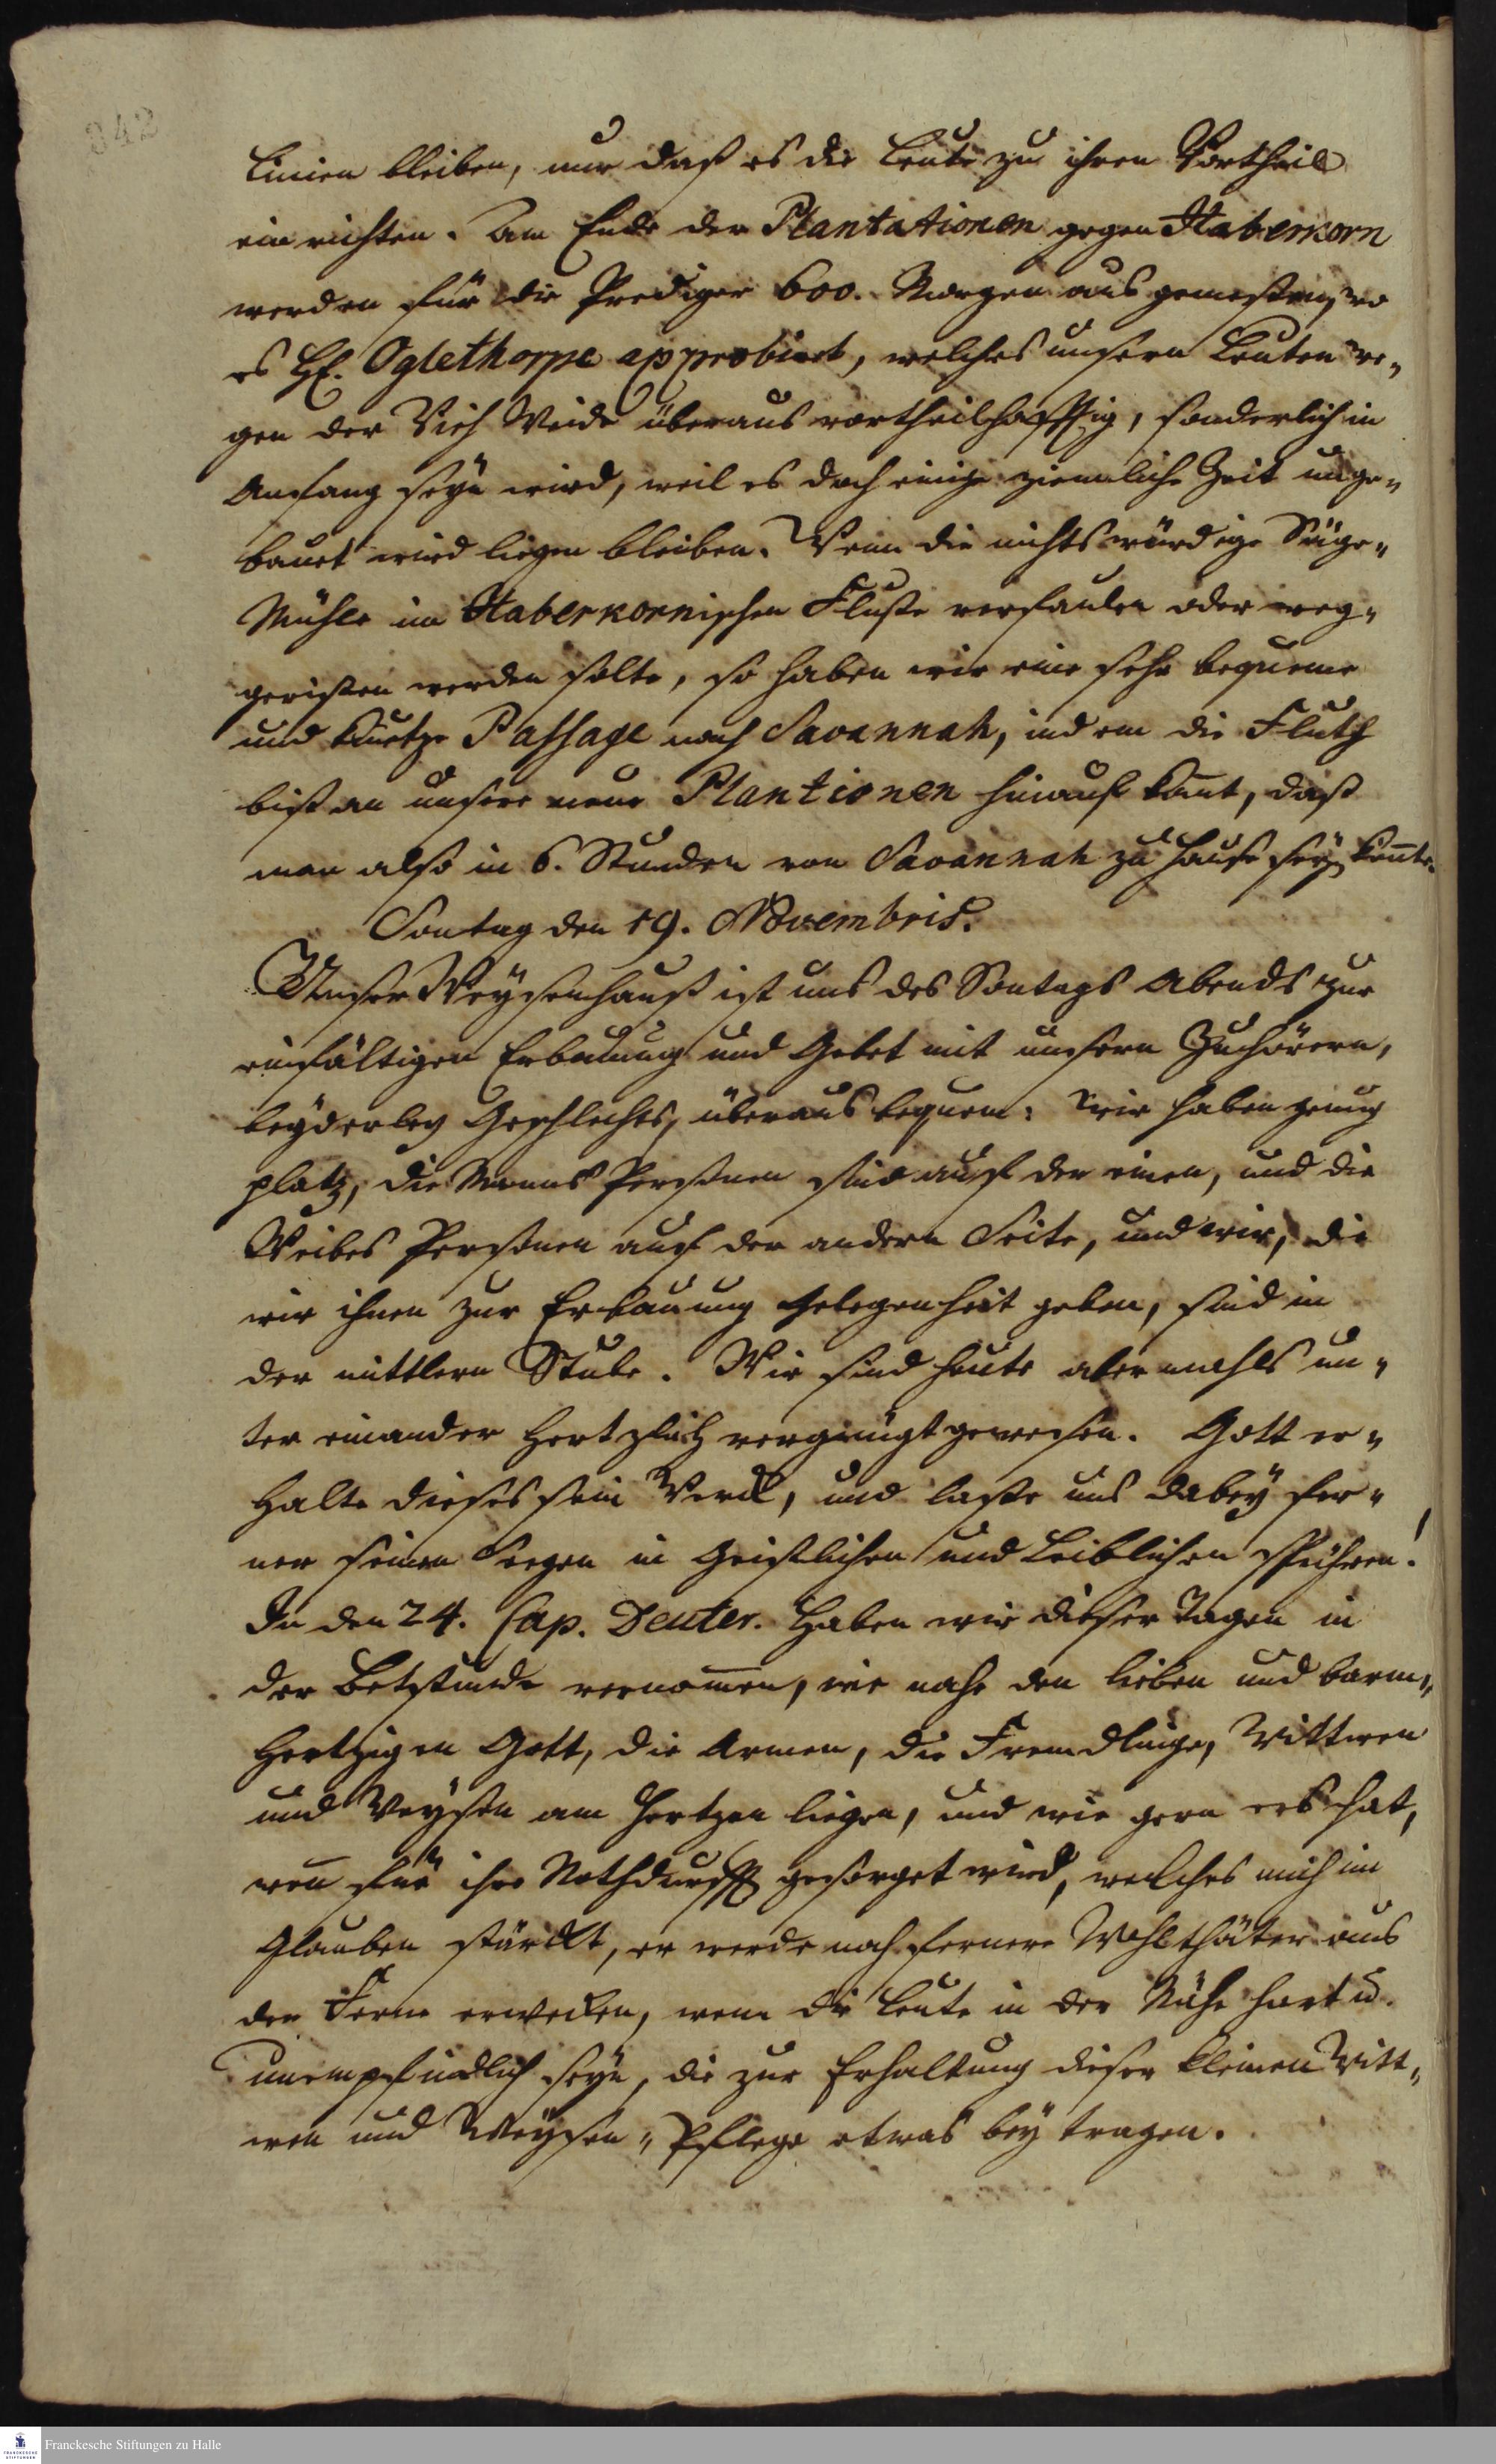 342
Linien bleiben, nur daß es die Leute zu ihren Vortheil
einrichten. Am Ende der Plantationen gegen Haberkorn
werden für die Prediger 600. Morgen ausgemeßen, wo
es H. Oglethorpe approbirt, welches unsern Leuten we„
gen der Vieh Weide überaus vortheilhafftig, sonderlich in
Anfang seyn wird, weil es doch einige ziemliche Zeit unge„
bauet wird liegen bleiben. Wenn die nichtswürdige Säge„
Mühle im Haberkornischen Fluße verfaulen oder weg„
gerißen werden solte, so haben wir eine sehr bequeme
und kurtze Passage nach Savannah, indem die Fluth
biß an unsere neue Plantionen hinauf kom̄t, daß
man also in 6. Stunden von Savannah zu Hause seyn kon̄te.
Sontag den 19. Novembris.
Unser Weysenhauß ist uns des Sontags Abends zur
einfältigen Erbauung und Gebet mit unsern Zuhörern,
beyderley Geschlechts, überaus bequem: wir haben genug
platz, die Manns Personen sind auf der einen, und die
Weibes Personen auf der andern Seite, und wir, die
wir ihnen zur Erbauung Gelegenheit geben, sind in
der mittlern Stube. Wir sind heute abermahls un„
ter einander hertzlich vergnügt gewesen. Gott er„
halte dieses sein Werck, und laße uns dabey fer„
ner seinen Seegen in Geistlichen und Leiblichen spühren!
In den 24. Cap. Deuter. haben wir dieser Tagen in
der Betstunde vernom̄en, wie nahe den lieben und barm„
hertzigen Gott, die Armen, die Fremdlinge, Wittwen
und Weysen am Hertzen liegen, und wie gern ers hat,
wen̄ für ihre Nothdurfft gesorget wird, welches mich im
Glauben stärckt, er werde noch fernere Wohlthäter aus
der Ferne erwecken, wenn die Leute in der Nähe hart u.
unempfindlich seyn, die zur Erhaltung dieser kleinen Witt„
wen und Weysen„Pflege etwas beytragen.
FRANCKESCHE STIFTUNGEN
Franckesche Stiftungen zu Halle